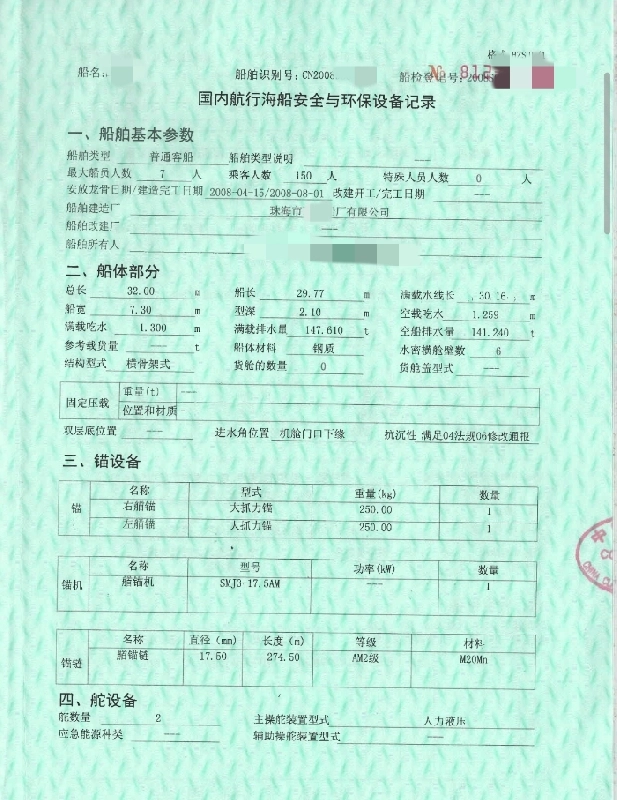 船名
船舶识别号：CN2008
船检登记号：
№ 812
国内航行海船安全与环保设备记录
一、船舶基本参数
船舶类型 普通客船 船舶类型说明 ---
最大船员人数 7 人 乘客人数 150 人 特殊人员人数 0 人
安放龙骨日期/建造完工日期 2008-04-15/2008-08-01 改建开工/完工日期 ---
船舶建造厂 珠海市 厂有限公司
船舶改建厂 ---
船舶所有人
二、船体部分
总长 32.00 m 船长 29.77 m 满载水线长 m
船宽 7.30 m 型深 2.10 m 空载吃水 1.259 m
满载吃水 1.300 m 满载排水量 147.610 t 空船排水量 141.240 t
参考载货量 --- t 船体材料 钢质 水密横舱壁数 6
结构型式 横骨架式 货舱的数量 0 货舱盖型式 ---
固定压载 重量(t) ---
位置和材质
双层底位置 --- 进水角位置 机舱门口下缘 抗沉性 满足04法规06修改通报
三、锚设备
名称 型式 重量(kg) 数量
锚 右艏锚 大抓力锚 250.00 1
左艏锚 大抓力锚 250.00 1
名称 型号 功率(kW) 数量
锚机 艏锚机 SMJ3-17.5AM --- 1
名称 直径(mm) 长度(m) 等级 材料
锚链 艏锚链 17.50 274.50 AM2级 M20Mn
四、舵设备
舵数量 2 主操舵装置型式 人力液压
应急能源种类 --- 辅助操舵装置型式 ---